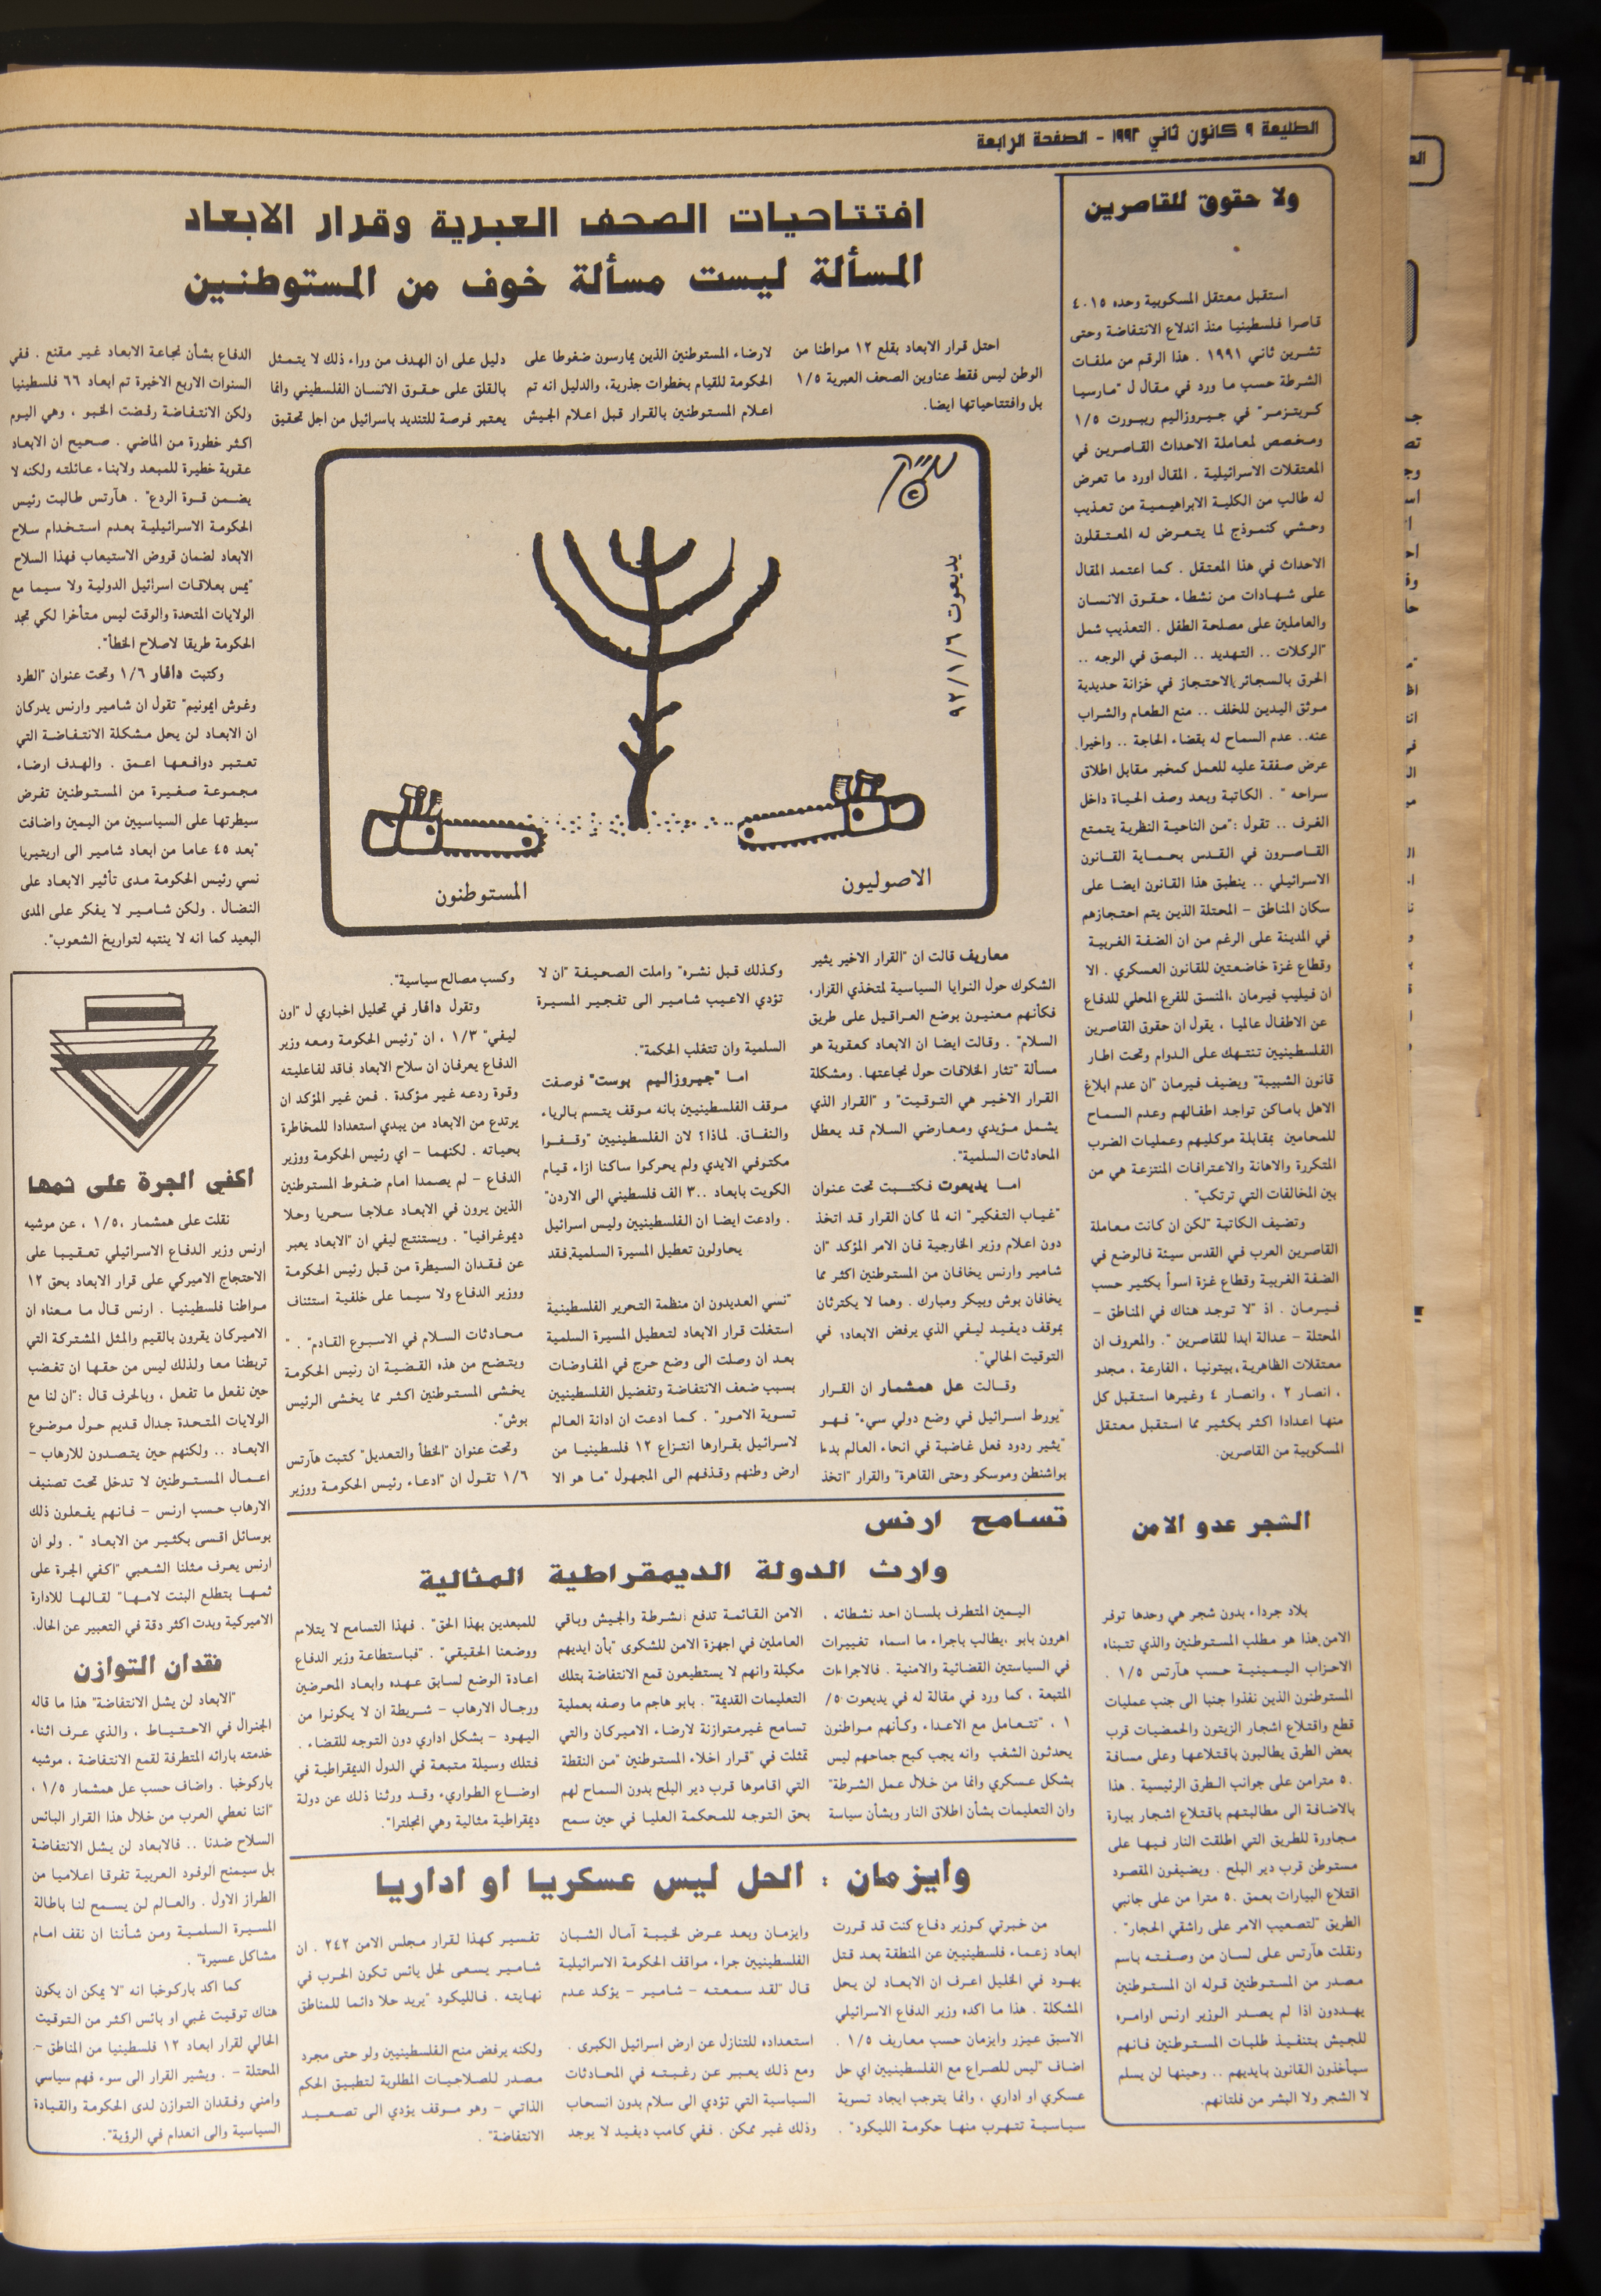 الطليعة ٩ كانون ثاني ١٩٩٢ - الصفحة الرابعة
ولا حقوق للقاصرين
استقبل معتقل المسكوبية وحده ٤٠١٥
قاصرا فلسطينيا منذ اندلاع الانتفاضة وحتى
تشرين ثاني ١٩٩١ . هذا الرقم من ملفات
الشرطة حسب ما ورد في مقال ل "مارسيا
كريتزمر" في جيروزاليم ريبورت ١/٥
ومخصص لمعاملة الاحداث القاصرين في
المعتقلات الاسرائيلية . المقال اورد ما تعرض
له طالب من الكلية الابراهيمية من تعذيب
وحشي كنموذج لما يتعرض له المعتقلون
الاحداث في هذا المعتقل . كما اعتمد المقال
على شهادات من نشطاء حقوق الانسان
والعاملين على مصلحة الطفل . التعذيب شمل
"الركلات .. التهديد .. البصق في الوجه ..
الحرق بالسجائر ,الاحتجاز في خزانة حديدية
موثق اليدين للخلف .. منع الطعام والشراب
عنه.. عدم السماح له بقضاء الحاجة .. واخيرا
عرض صفقة عليه للعمل كمخبر مقابل اطلاق
سراحه " . الكاتبة وبعد وصف الحياة داخل
الغرف .. تقول :"من الناحية النظرية يتمتع
القاصرون في القدس بحماية القانون
الاسرائيلي .. ينطبق هذا القانون ايضا على
سكان المناطق - المحتلة الذين يتم احتجازهم
في المدينة على الرغم من ان الضفة الغربية
وقطاع غزة خاضعتين للقانون العسكري . الا
ان فيليب فيرمان ،المنسق للفرع المحلي للدفاع
عن الاطفال عالميا ، يقول ان حقوق القاصرين
الفلسطينيين تنتهك على الدوام وتحت اطار
قانون الشبيبة" ويضيف فيرمان "ان عدم ابلاغ
الاهل باماكن تواجد اطفالهم وعدم السماح
للمحامين بمقابلة موكليهم وعمليات الضرب
المتكررة والاهانة والاعترافات المنتزعة هي من
بين المخالفات التي ترتكب" .
وتضيف الكاتبة "لكن ان كانت معاملة
القاصرين العرب في القدس سيئة فالوضع في
الضفة الغربية وقطاع غزة اسوأ بكثير حسب
فيرمان . اذ "لا توجد هناك في المناطق -
المحتلة - عدالة ابدا للقاصرين ". والمعروف ان
معتقلات الظاهرية ،بيتونيا ، الفارعة ، مجدو
، انصار ٢ ، وانصار ٤ وغيرها استقبل كل
منها اعدادا اكثر بكثير مما استقبل معتقل
المسكوبية من القاصرين.
الشجر عدو الامن
بلاد جرداء بدون شجر هي وحدها توفر
الامن.هذا هو مطلب المستوطنين والذي تتبناه
الاحزاب اليمينية حسب هآرتس ١/٥ .
المستوطنون الذين نفذوا جنبا الى جنب عمليات
قطع واقتلاع اشجار الزيتون والحمضيات قرب
بعض الطرق يطالبون باقتلاعها وعلى مسافة
٥٠ مترامن على جوانب الطرق الرئيسية . هذا
بالاضافة الى مطالبتهم باقتلاع اشجار بيارة
مجاورة للطريق التي اطلقت النار فيها على
مستوطن قرب دير البلح . ويضيفون المقصود
اقتلاع البيارات بعمق ٥٠ مترا من على جانبي
الطريق "لتصعيب الامر على راشقي الحجار" .
ونقلت هآرتس على لسان من وصفته باسم
مصدر من المستوطنين قوله ان المستوطنين
يهددون اذا لم يصدر الوزير ارنس اوامره
للجيش بتنفيذ طلبات المستوطنين فانهم
سيأخذون القانون بايديهم .. وحينها لن يسلم
لا الشجر ولا البشر من فلتانهم.
افتتاحيات الصحف العبرية وقرار الابعاد
المسألة ليست مسألة خوف من المستوطنين
احتل قرار الابعاد بقلع ١٢ مواطنا من
الوطن ليس فقط عناوين الصحف العبرية ١/٥
بل وافتتاحياتها ايضا.
معاريف قالت ان "القرار الاخير يثير
الشكوك حول النوايا السياسية لمتخذي القرار،
فكأنهم معنيون بوضع العراقيل على طريق
السلام" . وقالت ايضا ان الابعاد كعقوبة هو
مسألة "تثار الخلافات حول نجاعتها. ومشكلة
القرار الاخير هي التوقيت" و "القرار الذي
يشمل مؤيدي ومعارضي السلام قد يعطل
المحادثات السلمية".
اما يديعوت فكتبت تحت عنوان
"غياب التفكير" انه لما كان القرار قد اتخذ
دون اعلام وزير الخارجية فان الامر المؤكد "ان
شامير وارنس يخافان من المستوطنين اكثر مما
يخافان بوش وبيكر ومبارك . وهما لا يكترثان
بموقف ديفيد ليفي الذي يرفض الابعاد، في
التوقيت الحالي".
وقالت عل همشمار ان القرار
"يورط اسرائيل في وضع دولي سيء" فهو
"يثير ردود فعل غاضبة في انحاء العالم بدءا
بواشنطن وموسكو وحتى القاهرة" والقرار "اتخذ
لارضاء المستوطنين الذين يمارسون ضغوطا على
الحكومة للقيام بخطوات جذرية، والدليل انه تم
اعلام المستوطنين بالقرار قبل اعلام الجيش
وكذلك قبل نشره" واملت الصحيفة "ان لا
تؤدي الاعيب شامير الى تفجير المسيرة
السلمية وان تتغلب الحكمة".
اما "جيروزاليم بوست" فوصفت
موقف الفلسطينيين بانه موقف يتسم بالرياء
والنفاق. لماذا؟ لان الفلسطينيين "وقفوا
مكتوفي الايدي ولم يحركوا ساكنا ازاء قيام
الكويت بابعاد ٣٠٠ الف فلسطيني الى الاردن"
. وادعت ايضا ان الفلسطينيين وليس اسرائيل
يحاولون تعطيل المسيرة السلمية,فقد
"نسي العديدون ان منظمة التحرير الفلسطينية
استغلت قرار الابعاد لتعطيل المسيرة السلمية
بعد ان وصلت الى وضع حرج في المفاوضات
بسبب ضعف الانتفاضة وتفضيل الفلسطينيين
تسوية الامور" . كما ادعت ان ادانة العالم
لاسرائيل بقرارها انتزاع ١٢ فلسطينيا من
ارض وطنهم وقذفهم الى المجهول "ما هو الا
دليل على ان الهدف من وراء ذلك لا يتمثل
بالقلق على حقوق الانسان الفلسطيني وانما
يعتبر فرصة للتنديد باسرائيل من اجل تحقيق
وكسب مصالح سياسية".
وتقول دافار في تحليل اخباري ل "اون
ليفي" ١/٣ ، ان "رئيس الحكومة ومعه وزير
الدفاع يعرفان ان سلاح الابعاد فاقد لفاعليته
وقوة ردعه غير مؤكدة . فمن غير المؤكد ان
يرتدع من الابعاد من يبدي استعدادا للمخاطرة
بحياته . لكنهما - اي رئيس الحكومة ووزير
الدفاع - لم يصمدا امام ضغوط المستوطنين
الذين يرون في الابعاد علاجا سحريا وحلا
ديموغرافيا" . ويستنتج ليفي ان "الابعاد يعبر
عن فقدان السيطرة من قبل رئيس الحكومة
ووزير الدفاع ولا سيما على خلفية استئناف
محادثات السلام في الاسبوع القادم" . "
ويتضح من هذه القضية ان رئيس الحكومة
يخشى المستوطنين اكثر مما يخشى الرئيس
بوش".
وتحت عنوان "الخطأ والتعديل" كتبت هآرتس
١/٦ تقول ان "ادعاء رئيس الحكومة ووزير
الدفاع بشأن نجاعة الابعاد غير مقنع . ففي
السنوات الاربع الاخيرة تم ابعاد ٦٦ فلسطينيا
ولكن الانتفاضة رفضت الخبو ، وهي اليوم
اكثر خطورة من الماضي . صحيح ان الابعاد
عقوبة خطيرة للمبعد ولابناء عائلته ولكنه لا
يضمن قوة الردع" . هآرتس طالبت رئيس
الحكومة الاسرائيلية بعدم استخدام سلاح
الابعاد لضمان قروض الاستيعاب فهذا السلاح
"يمس بعلاقات اسرائيل الدولية ولا سيما مع
الولايات المتحدة والوقت ليس متأخرا لكي تجد
الحكومة طريقا لاصلاح الخطأ".
وكتبت دافار ١/٦ وتحت عنوان "الطرد
وغوش ايمونيم" تقول ان شامير وارنس يدركان
ان الابعاد لن يحل مشكلة الانتفاضة التي
تعتبر دوافعها اعمق . والهدف ارضاء
مجموعة صغيرة من المستوطنين تفرض
سيطرتها على السياسيين من اليمين واضافت
"بعد ٤٥ عاما من ابعاد شامير الى اريتيريا
نسي رئيس الحكومة مدى تأثير الابعاد على
النضال . ولكن شامير لا يفكر على المدى
البعيد كما انه لا ينتبه لتواريخ الشعوب".
يديعوت ٩٢/١/٦
الاصوليون
المستوطنون
اكفي الجرة على ثمها
نقلت على همشمار ،١/٥ ، عن موشيه
ارنس وزير الدفاع الاسرائيلي تعقيبا على
الاحتجاج الاميركي على قرار الابعاد بحق ١٢
مواطنا فلسطينيا . ارنس قال ما معناه ان
الاميركان يقرون بالقيم والمثل المشتركة التي
تربطنا معا ولذلك ليس من حقها ان تغضب
حين نفعل ما تفعل ، وبالحرف قال :"ان لنا مع
الولايات المتحدة جدال قديم حول موضوع
الابعاد .. ولكنهم حين يتصدون للارهاب -
اعمال المستوطنين لا تدخل تحت تصنيف
الارهاب حسب ارنس - فانهم يفعلون ذلك
بوسائل اقسى بكثير من الابعاد " . ولو ان
ارنس يعرف مثلنا الشعبي "اكفي الجرة على
ثمها بتطلع البنت لامها" لقالها للادارة
الاميركية وبدت اكثر دقة في التعبير عن الحال.
فقدان التوازن
"الابعاد لن يشل الانتفاضة" هذا ما قاله
الجنرال في الاحتياط ، والذي عرف اثناء
خدمته بارائه المتطرفة لقمع الانتفاضة ، موشيه
باركوخبا . واضاف حسب عل همشمار ١/٥ ،
"اننا نعطي العرب من خلال هذا القرار البائس
السلاح ضدنا .. فالابعاد لن يشل الانتفاضة
بل سيمنح الوفود العربية تفوقا اعلاميا من
الطراز الاول . والعالم لن يسمح لنا باطالة
المسيرة السلمية ومن شأننا ان نقف امام
مشاكل عسيرة" .
كما اكد باركوخبا انه "لا يمكن ان يكون
هناك توقيت غبي او بائس اكثر من التوقيت
الحالي لقرار ابعاد ١٢ فلسطينيا من المناطق -
المحتلة - . ويشير القرار الى سوء فهم سياسي
وامني وفقدان التوازن لدى الحكومة والقيادة
السياسية والى انعدام في الرؤية".
تسامح ارنس
وارث الدولة الديمقراطية المثالية
اليمين المتطرف بلسان احد نشطائه ،
اهرون بابو ،يطالب باجراء ما اسماه تغييرات
في السياستين القضائية والامنية . فالاجراءات
المتبعة ، كما ورد في مقالة له في يديعوت ٥/
١ ، "تتعامل مع الاعداء وكأنهم مواطنون
يحدثون الشغب وانه يجب كبح جماحهم ليس
بشكل عسكري وانما من خلال عمل الشرطة"
وان التعليمات بشأن اطلاق النار وبشأن سياسة
الامن القائمة تدفع الشرطة والجيش وباقي
العاملين في اجهزة الامن للشكوى "بأن ايديهم
مكبلة وانهم لا يستطيعون قمع الانتفاضة بتلك
التعليمات القديمة" . بابو هاجم ما وصفه بعملية
تسامح غيرمتوازنة لارضاء الاميركان والتي
تمثلت في "قرار اخلاء المستوطنين "من النقطة
التي اقاموها قرب دير البلح بدون السماح لهم
بحق التوجه للمحكمة العليا في حين سمح
للمبعدين بهذا الحق" . فهذا التسامح لا يتلاءم
ووضعنا الحقيقي" . "فباستطاعة وزير الدفاع
اعادة الوضع لسابق عهده وابعاد المحرضين
ورجال الارهاب - شريطة ان لا يكونوا من
اليهود - بشكل اداري دون التوجه للقضاء .
فتلك وسيلة متبعة في الدول الديمقراطية في
اوضاع الطواريء وقد ورثنا ذلك عن دولة
ديمقراطية مثالية وهي انجلترا".
وايزمان : الحل ليس عسكريا او اداريا
من خبرتي كوزير دفاع كنت قد قررت
ابعاد زعماء فلسطينيين عن المنطقة بعد قتل
يهود في الخليل اعرف ان الابعاد لن يحل
المشكلة . هذا ما اكده وزير الدفاع الاسرائيلي
الاسبق عيزر وايزمان حسب معاريف ١/٥ .
اضاف "ليس للصراع مع الفلسطينيين اي حل
عسكري او اداري ، وانما يتوجب ايجاد تسوية
سياسية تتهرب منها حكومة الليكود" .
وايزمان وبعد عرض لخيبة آمال الشبان
الفلسطينيين جراء مواقف الحكومة الاسرائيلية
قال "لقد سمعته - شامير - يؤكد عدم
استعداده للتنازل عن ارض اسرائيل الكبرى .
ومع ذلك يعبر عن رغبته في المحادثات
السياسية التي تؤدي الى سلام بدون انسحاب
وذلك غير ممكن . ففي كامب ديفيد لا يوجد
تفسير كهذا لقرار مجلس الامن ٢٤٢ . ان
شامير يسعى لحل يائس تكون الحرب في
نهايته . فالليكود "يريد حلا دائما للمناطق
ولكنه يرفض منح الفلسطينيين ولو حتى مجرد
مصدر للصلاحيات المطلوبة لتطبيق الحكم
الذاتي - وهو موقف يؤدي الى تصعيد
الانتفاضة" .